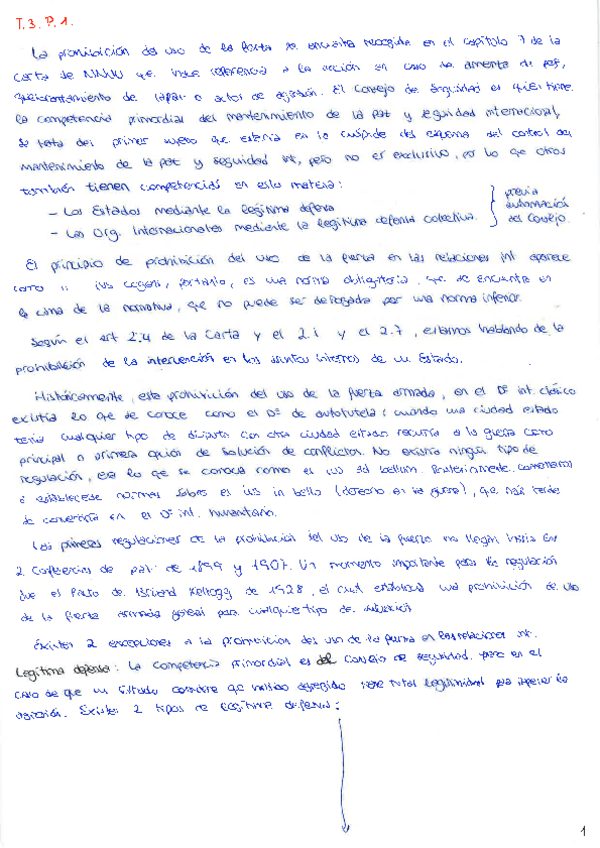 T.3. P.1.
La prohibición del uso de la fuerza se encuentra recogida en el capítulo 7 de la
Carta de NNUU que hace referencia a la acción en caso de amenaza de paz,
quebrantamiento de la paz o actos de agresión. El Consejo de Seguridad es quien tiene
la competencia primordial del mantenimiento de la paz y seguridad internacional,
se trata del primer sujeto que estaría en la cúspide del esquema del control del
mantenimiento de la paz y seguridad int, pero no es exclusivo, por lo que otros
también tienen competencias en esta materia:
- Los Estados mediante la legítima defensa
- Las Org. Internacionales mediante la legítima defensa colectiva.
previa
autorización
del Consejo.
El principio de prohibición del uso de la fuerza en las relaciones int aparece
como ius cogens, por tanto, es una norma obligatoria que se encuentra en
la cima de la normativa, que no puede ser derogada por una norma inferior.
Según el art 2.4 de la Carta y el 2.1 y el 2.7, estamos hablando de la
prohibición de la intervención en los asuntos internos de un Estado.
Históricamente, esta prohibición del uso de la fuerza armada, en el Dº int. clásico
existía lo que se conoce como el Dº de autotutela: cuando una ciudad estado
tenía cualquier tipo de disputa con otra ciudad estado recurría a la guerra como
principal o primera opción de solución de conflictos. No existía ningún tipo de
regulación, era lo que se conocía como el ius ad bellum. Posteriormente comenzaron
a establecerse normas sobre el ius in bello (derecho en la guerra), que más tarde
se convertiría en el Dº int. humanitario.
Las primeras regulaciones de la prohibición del uso de la fuerza no llegan hasta las
2 Conferencias de paz de 1899 y 1907. Un momento importante para la regulación
fue el Pacto de Briand Kellogg de 1928, el cual establecía una prohibición de uso
de la fuerza armada general para cualquier tipo de situación.
Existen 2 excepciones a la prohibición del uso de la fuerza en las relaciones int.
Legítima defensa: La competencia primordial es del Consejo de seguridad, pero en el
caso de que un Estado considere que ha sido agredido tiene total legitimidad para
agresión. Existen 2 tipos de legítima defensa:
1